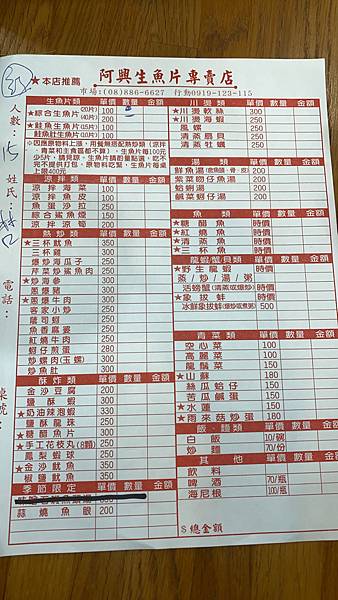 ★本店推薦
阿興生魚片專賣店
市場:(08)886-6627 行動0919-123-115
人數: 15
姓氏:
電話:
桌號:
生魚片類 單價 數量 金額
★綜合生魚片 (20片) 100
(40片) 200
★鮭魚生魚片 (15片) 100
鮭魚肚生魚片 (10片) 100
※因應原物料上漲，用餐無搭配熱炒類（涼拌
、青菜和主食區都不算），生魚片每100元
少5片，請見諒。生魚片請酌量點選，吃不
完不提供打包。原物料吃緊，生魚片每桌
上限400元
涼拌類 單價 數量 金額
涼拌海菜 100
涼拌魚皮 100
魚蛋沙拉 100
綜合鯊魚煙 150
涼拌涼筍 200
熱炒類 單價 數量 金額
★三杯魷魚 350
三杯雞 300
爆炒海瓜子 250
芹菜炒鯊魚肉 250
★炒海參 300
蔥爆豬 300
★蔥爆牛肉 300
客家小炒 250
薩司蝦 250
魚香腐婆 200
紅燒牛肉 200
蚵仔煎蛋 200
炒螺肉(玉螺) 200
炒魚肚 300
酥炸類 單價 數量 金額
金沙豆腐 200
鹽酥蝦 300
★奶油辣泡蝦 330
鹽酥龍珠 250
★糖醋魚片 250
★手工花枝丸(8顆) 250
鳳梨蝦球 250
★金沙魷魚 350
椒鹽魷魚 350
季節限定 單價 數量 金額
蒜燒魚眼 200
川燙類 單價 數量 金額
★川燙軟絲 300
★川燙海蝦 250
風螺 250
清蒸魚肉 250
清蒸牡蠣 300
湯類 單價 數量 金額
紫菜蚵仔魚湯 200
蛤蜊湯 200
鹹菜蚵仔湯 200
魚類 單價 數量 金額
★糖醋魚 時價
★紅燒魚 時價
★清蒸魚 時價
★三杯魚 時價
龍蝦蟹貝類 單價 數量 金額
★野生龍蝦 時價
蒸/炒/湯/粥
活螃蟹(清蒸或爆炒) 時價
★象拔蚌 時價
冰鮮象拔蚌(爆炒或煮粥) 500
青菜類 單價 數量 金額
空心菜 100
高麗菜 100
龍鬚菜 150
★山蘇 180
絲瓜蛤仔 180
苦瓜鹹蛋 180
★水蓮 180
★雨來菇炒蛋 180
飯、麵類 單價 數量 金額
白飯 10/碗
炒麵 70/份
其他 單價 數量 金額
飲料
啤酒 70/瓶
海尼根 100/瓶
$總金額